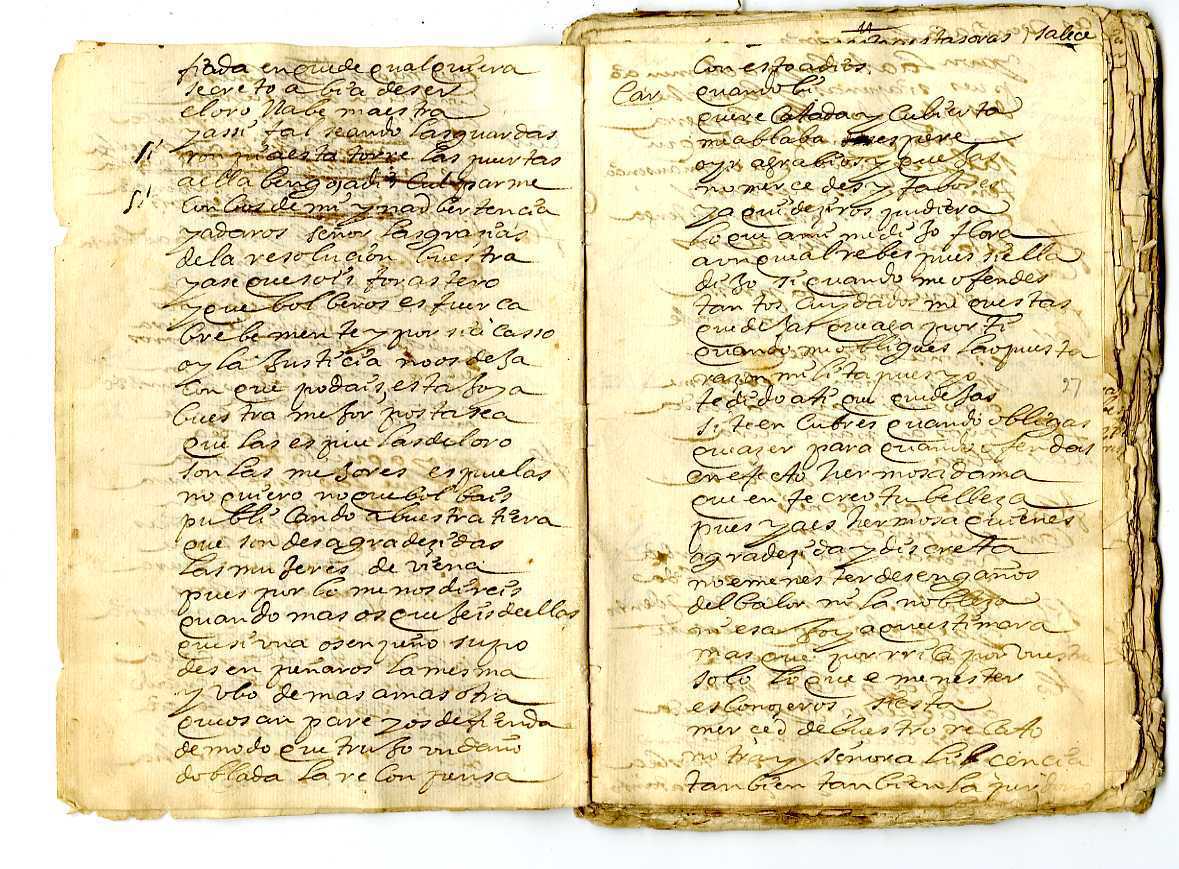 fiada en que de qualquiera
secreto abia de ser
el oro llabe maestra
y assi falseando las guardas
a esta torre las puertas
a ella bengo a di culparme
con bos de mi ynadbertencia
y a daros señor las graçias
de la resolucion buestra
ya se que sois forastero
y que bolberos es fuerca
brebemente y por si a casso
oy la Justicia no os deja
con que podais esta Joya
buestra mejor posta sea
que las espuelas del oro
son las mejores espuelas
no quiero no que bolbais
publicando a buestra tierra
que son desagradeçidas
las mujeres de viena
pues por lo menos direis
quando mas os quejeis de ellas
que si vna os enpeño supo
desenpeñaros la mesma
y vbo de mas a mas otra
que os anpare y os defienda
de modo que trujo vn daño
doblada la reconpensa
salese
con esto adios
Car quando bi
que re catada y cubierta
me ablaba espere
oyr agrabios y quejas
no mercedes y fabores
y aqui deziros pudiera
lo que a mi me dijo flora
aunque al rebes pues si ella
dijo si quando me ofendes
tantos cuydados me questas
que dejas que aga por ti
quando me obligues la opuesta
raçon milita pues yo
te digo a ti que que dejas
si te encubres quando obligas
que azer para quando ofendas
en efecto hermosa dama
que en fe creo tu belleza
pues ya es hermosa quien es
agradeçida y discreta
no e menester desengaños
del balor ni la nobleza
ni esa Joya que estimara
mas que por rica por vuestra
solo lo que e menester
es conoçeros
merced de buestro recato
señora licencia
tanbien tanbien la
27